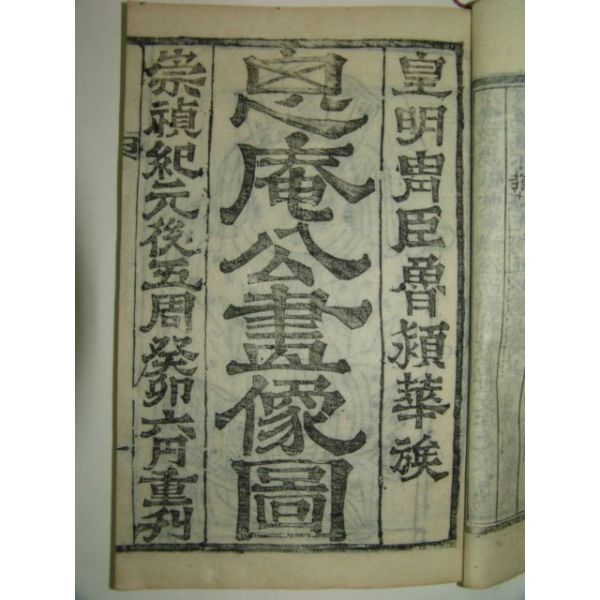 皇明胄臣魯潁華族
恖庵公畫像圖
崇禎紀元後五周癸卯六月重刊